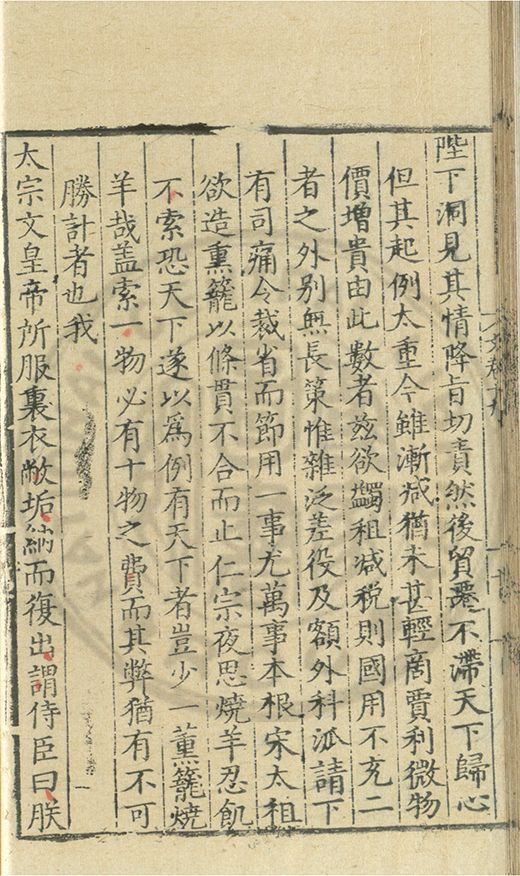 陛下洞見其情降旨切責然後貿遷不滯天下歸心
但其起例太重今雖漸减猶未甚輕商賈利微物
價增貴由此數者玆欲蠲租减税則國用不充二
者之外别無長策惟雜泛差役及額外科派請下
有司痛令裁省而節用一事尤萬事本根宋太祖
欲造熏籠以條貫不合而止仁宗夜思燒羊忍飢
不索恐天下遂以爲例有天下者豈少一薫籠燒
羊哉盖索一物必有十物之費而其弊猶有不可
勝計者也我
太宗文皇帝所服裏衣敝垢納而復出謂侍臣曰朕